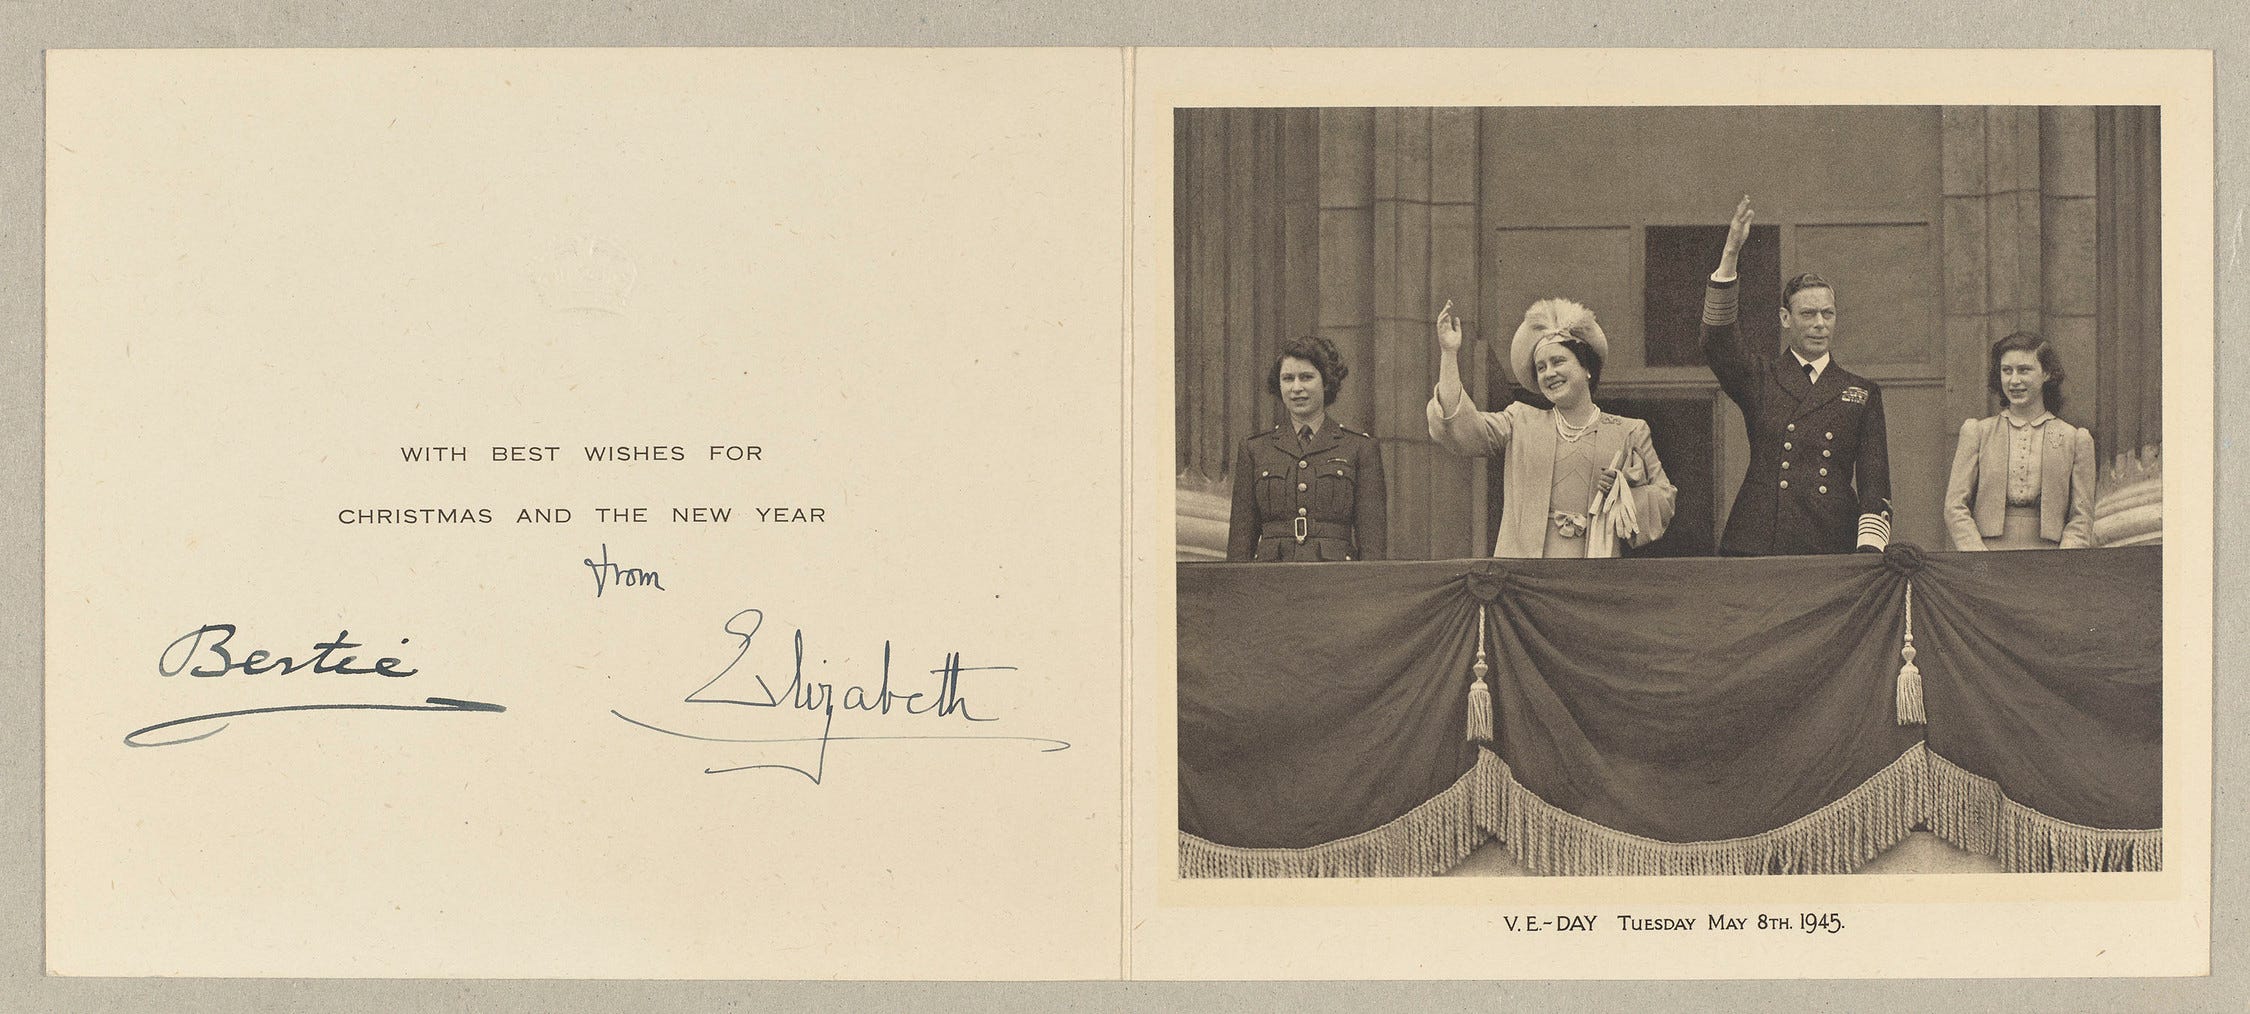 WITH BEST WISHES FOR
CHRISTMAS AND THE NEW YEAR
from
Bertie
Elizabeth
V.E.-DAY TUESDAY MAY 8TH. 1945.